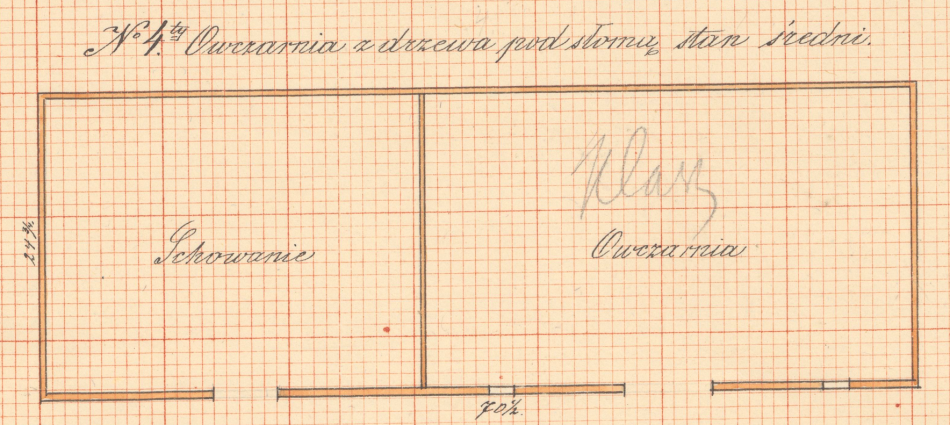 No 4.ty Owczarnia z drzewa pod słomą stan średni.
24 3/4.
Schowanie
Owczarnia
70 1/2.